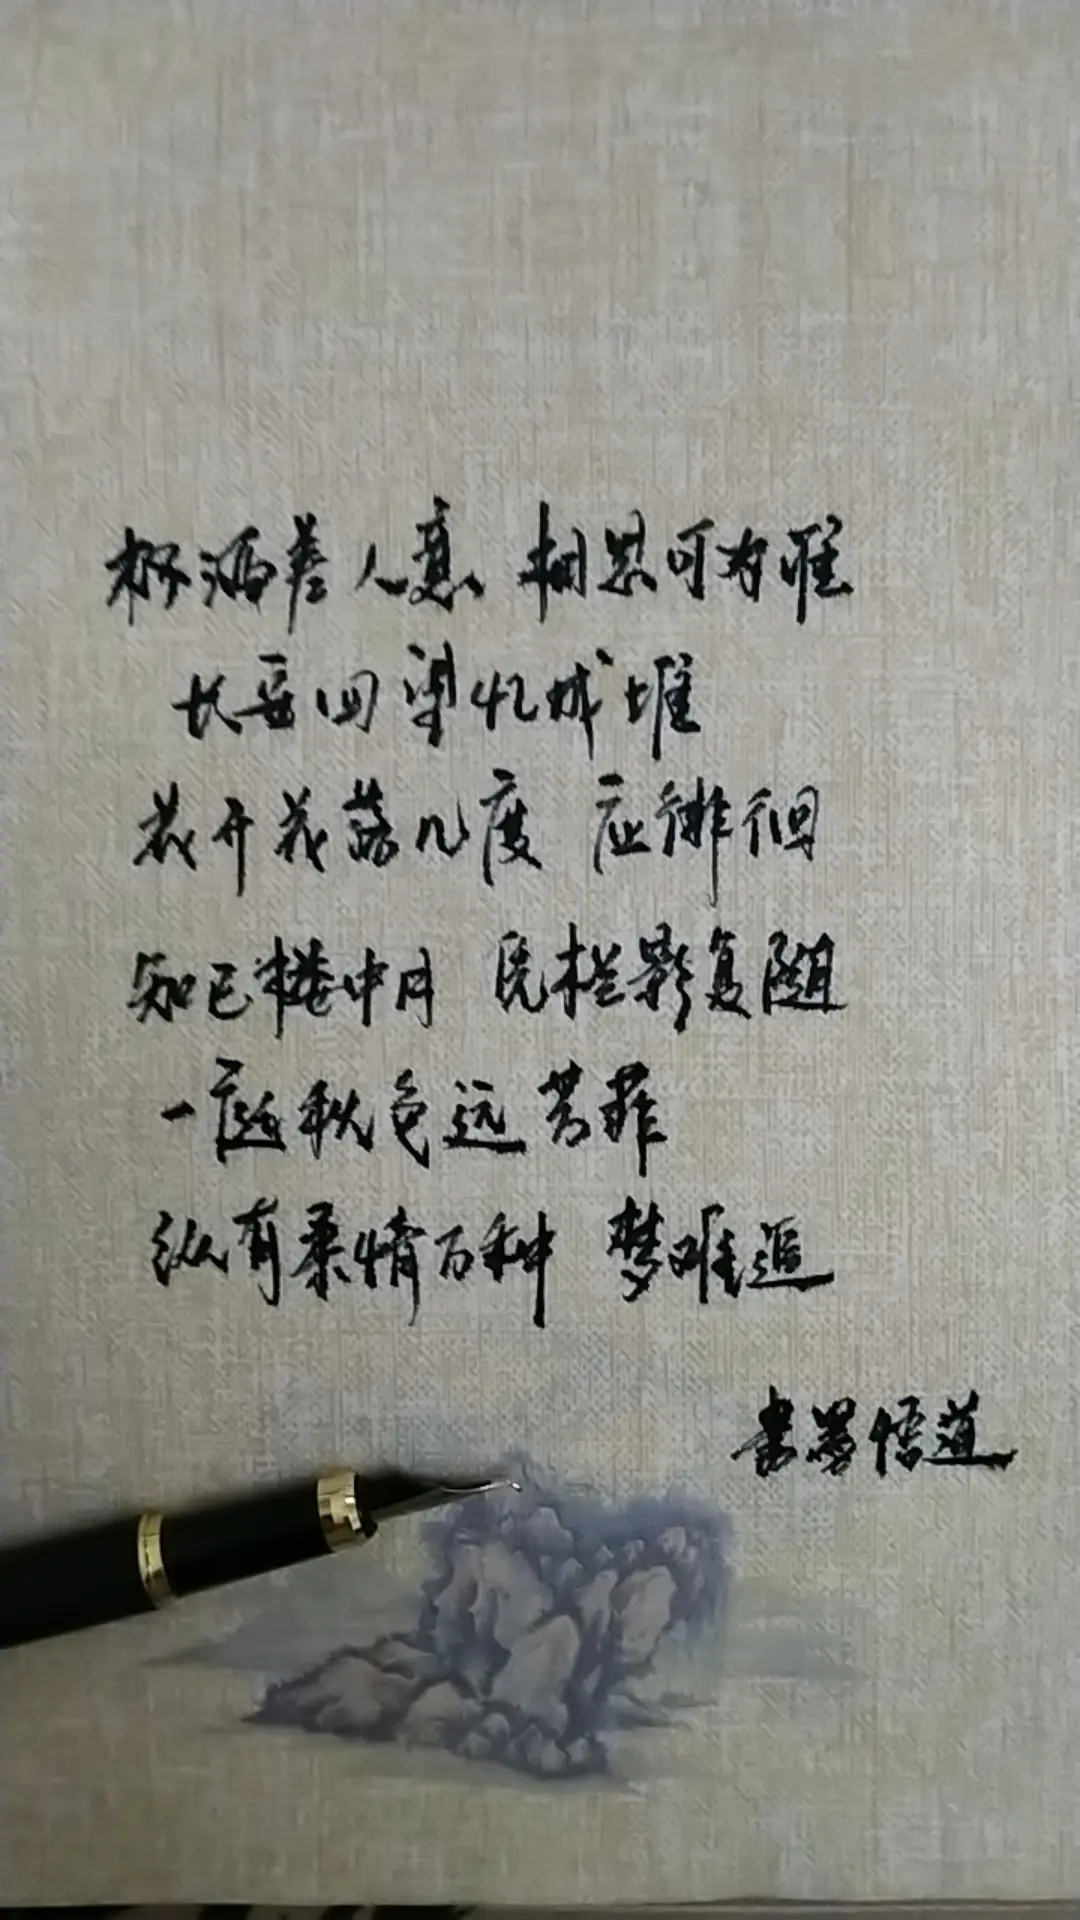 杯酒差人意 相思可为谁
长亭回梁忆成堆
花开花落几度 应徘徊
知己楼中月 凭栏影复随
一庭秋色远芳菲
纵有柔情万种 梦难追
书墨悟道